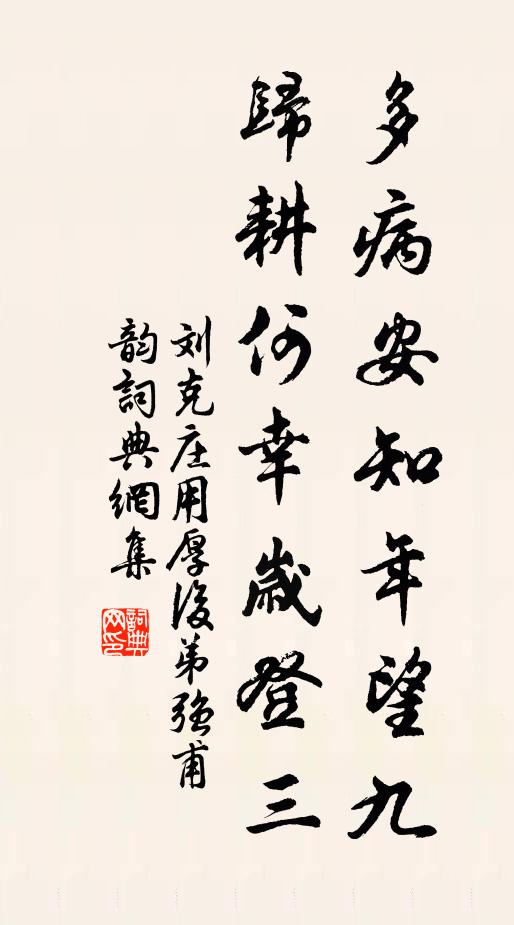 多病安知年望九
歸耕何幸歲登三
刘克庄用厚後弟強甫
韵詞典網集
詞典网印